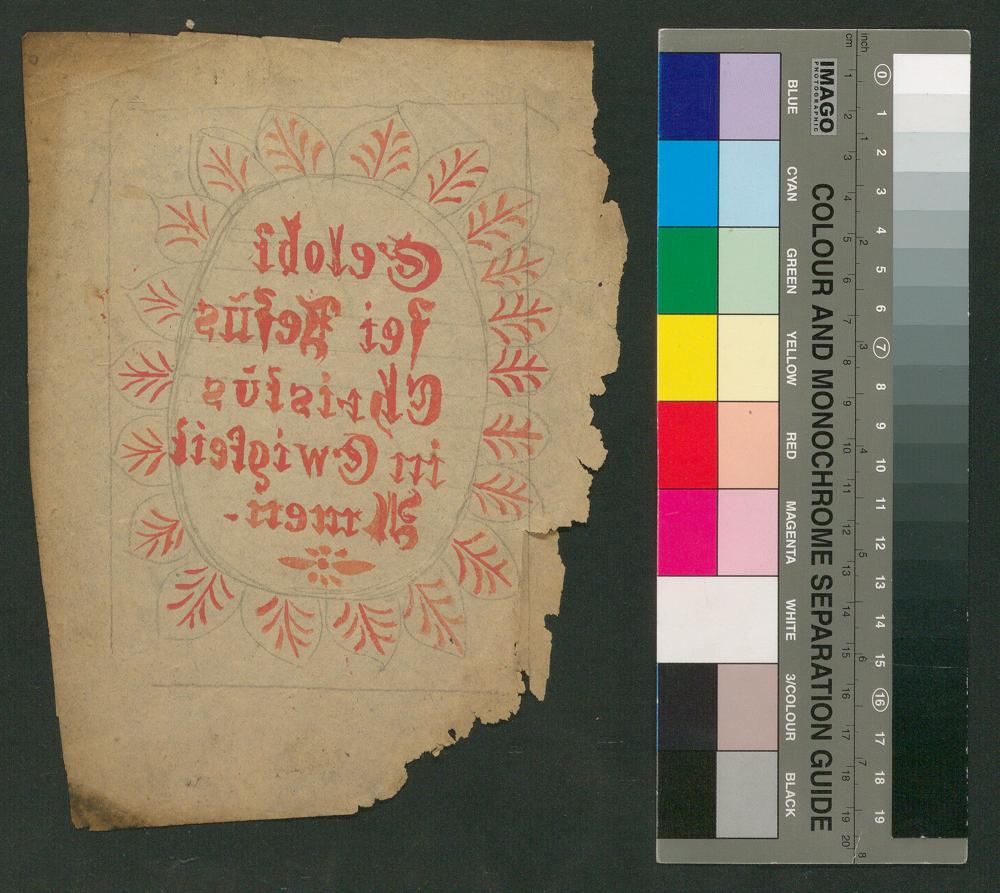 Gelobt
ſei Jeſŭs
Chriſtŭs
in Ewigkeit
Amen.
BLUE
CYAN
GREEN
YELLOW
RED
MAGENTA
WHITE
3/COLOUR
BLACK
IMAGO
PHOTOGRAPHIC
COLOUR AND MONOCHROME SEPARATION GUIDE
cm 1 2 3 4 5 6 7 8 9 10 11 12 13 14 15 16 17 18 19 20
inch 1 2 3 4 5 6 7 8
0 1 2 3 4 5 6 7 8 9 10 11 12 13 14 15 16 17 18 19